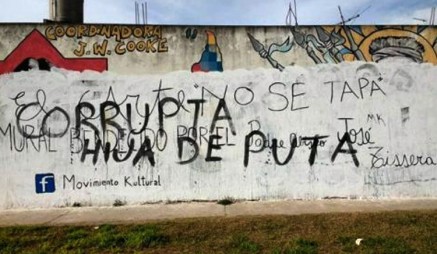 COORDINADORA
J.W. COOKE
El Arte NO SE TAPA
CORRUPTA
MURAL POR EL José
HIJA DE PUTA
Tissera
f Movimiento Kultural
MK